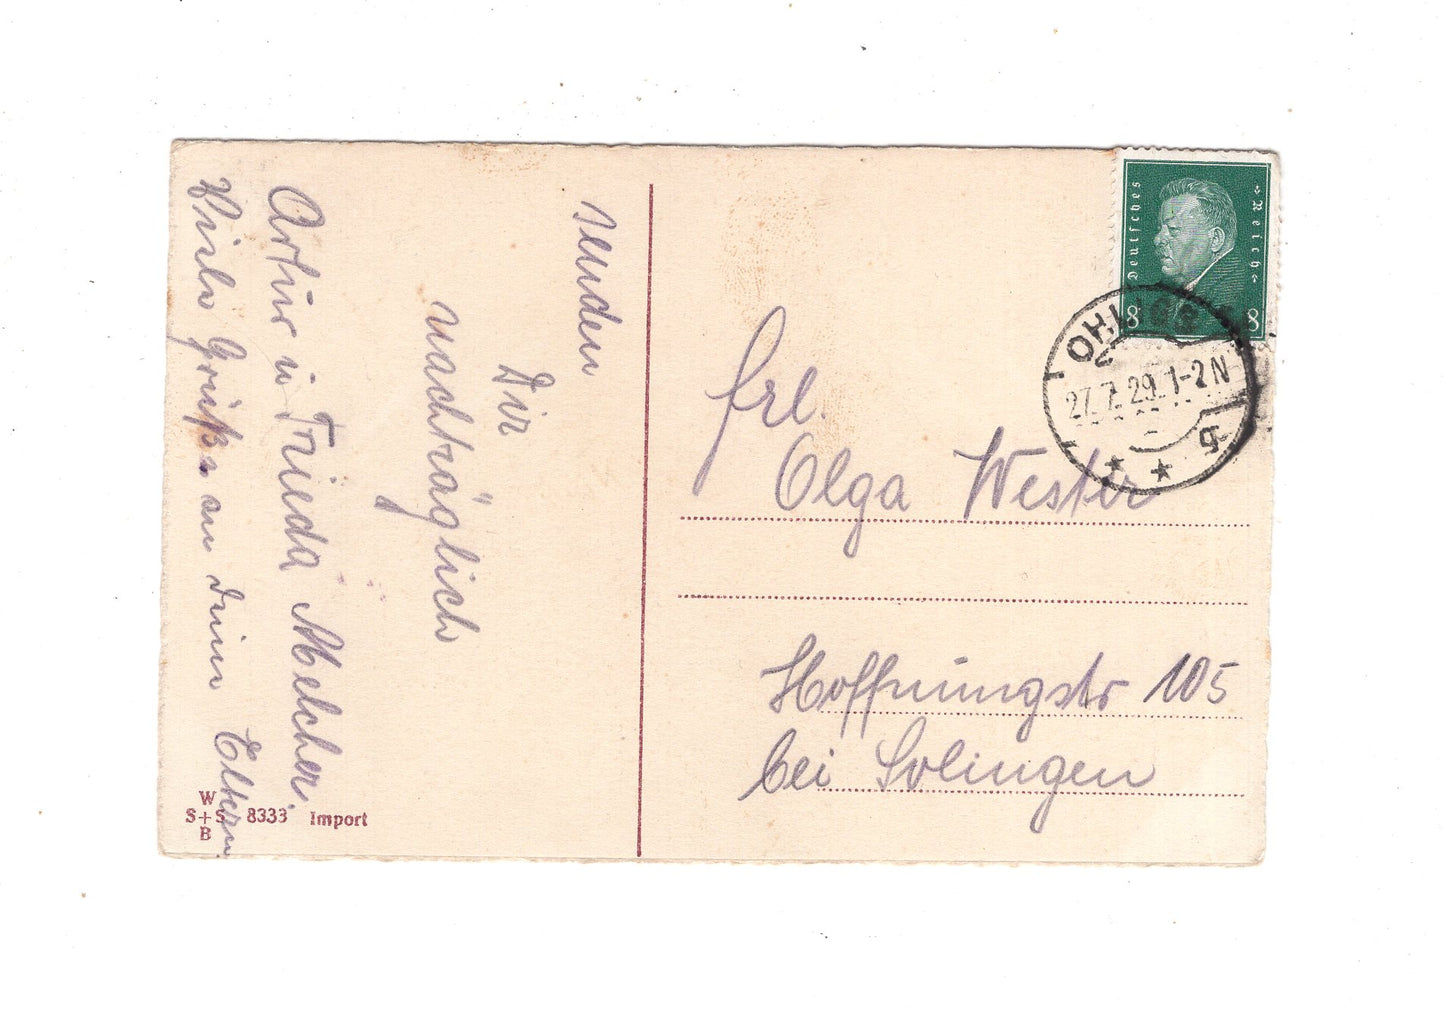 senden
Dir
nachträglich
Artur u Frieda Melcher.
Viele Grüße an Deine Eltern.
W
S+S 8333 Import
B
Deutsches Reich
8 8
OHLIGS
27.7.29.1-2N
* * g
Frl.
Olga Wester
Hoffnungstr 105
bei Solingen